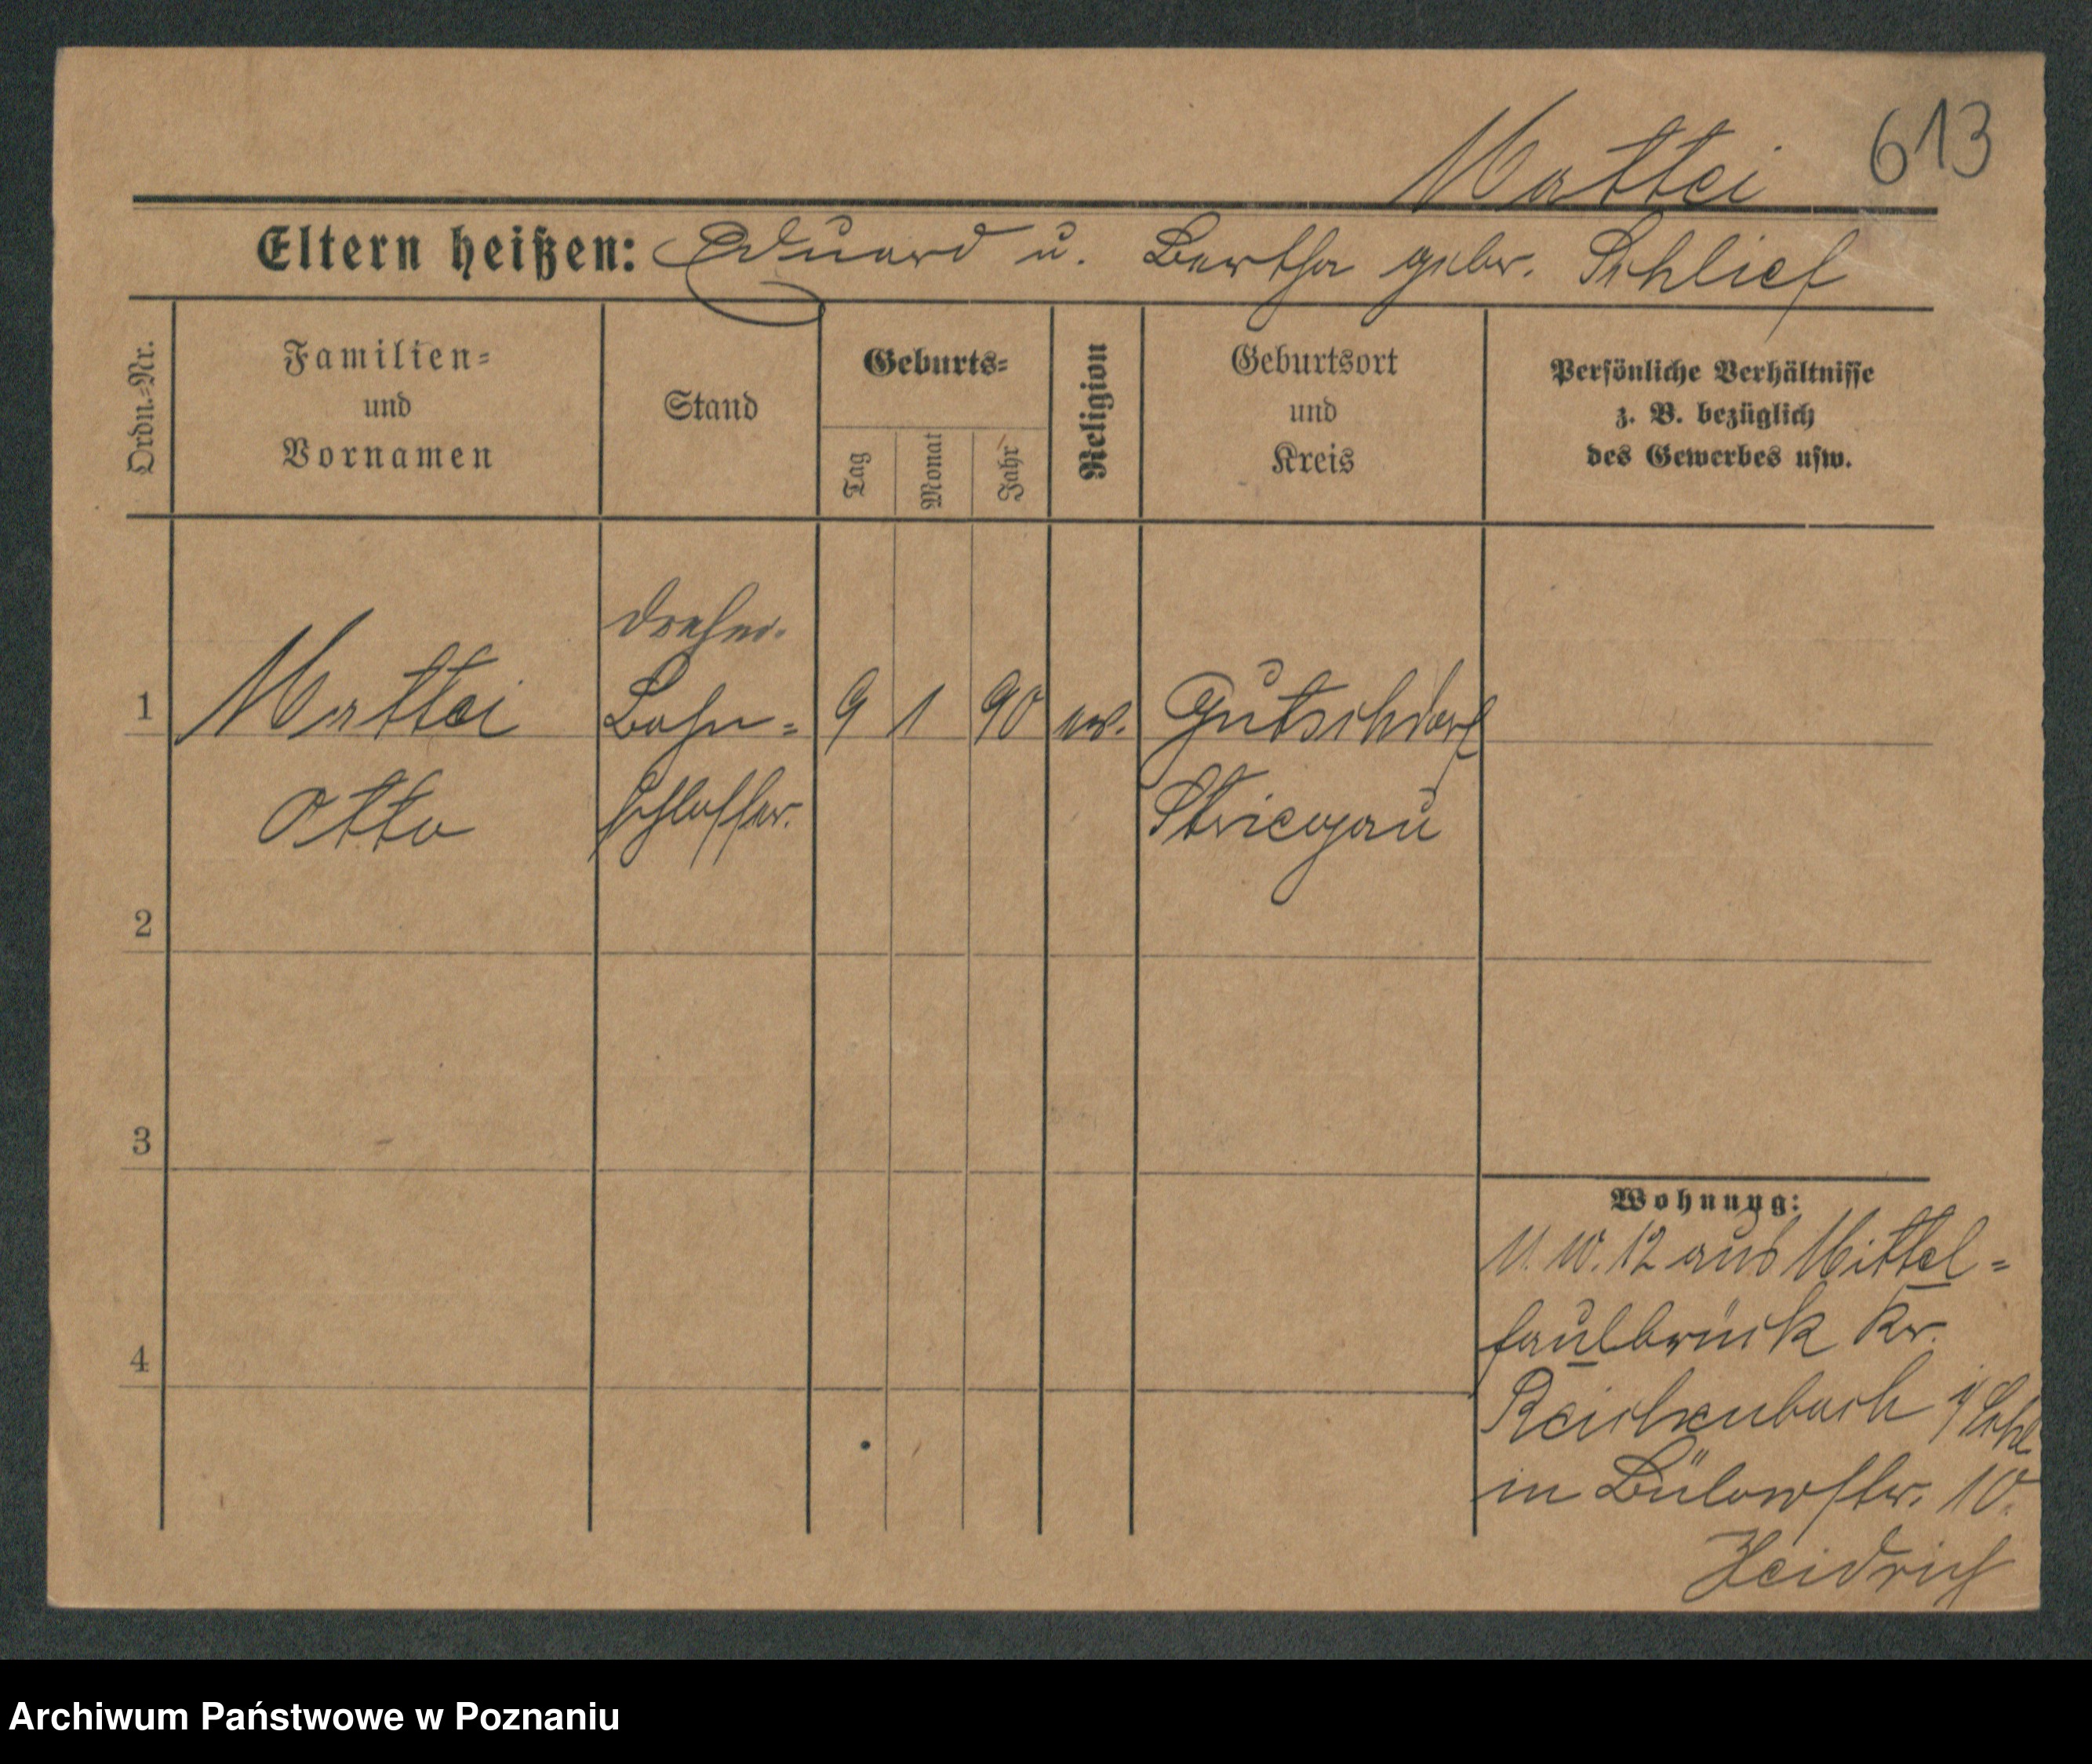 Mattei 613
Eltern heißen: Eduard u. Bertha gebr. Schlief
Ordn.-Nr.
Familien-
und
Vornamen
Stand
Geburts-
Tag
Monat
Jahr
Religion
Geburtsort
und
Kreis
Persönliche Verhältnisse
z. B. bezüglich
des Gewerbes usw.
Dreher.
1 Mattei Bahn- 9 1 90 ev. Gutschdorf
Otto schlosser. Striegau
2
3
4
Wohnung:
11.10.12 aus Mittel-
faulbrück Kr.
Reichenbach i/Schl
in Bülowstr. 10.
Heidrich
Archiwum Państwowe w Poznaniu